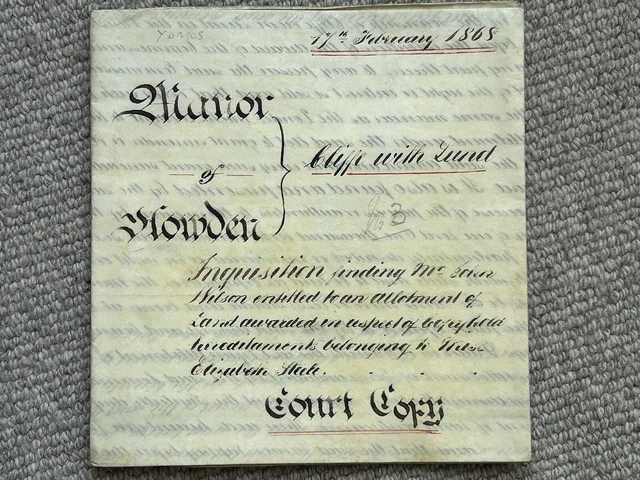 YORKS
17th February 1868
Manor
of
Howden
Cliffe with Lund
B
Inquisition finding Mr. John
Wilson entitled to an allotment of
Land awarded in respect of Copyhold
hereditaments belonging to
Elizabeth State.
Court Copy